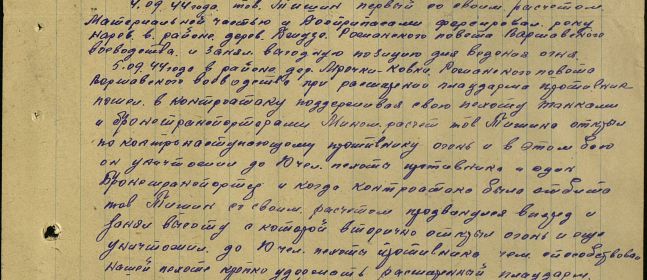 4.09.44 года тов. Тишин первый со своим расчетом
материальной частью и боеприпасами форсировал реку
Нарев в районе дерев. Рожанского повета Варшавского
воеводства и занял выгодную позицию для ведения огня.
5.09.44 года в районе дер. Мрочки-Ковки Рожанского повета
Варшавского воеводства при расширении плацдарма противник
пошел в контроатаку поддерживая свою пехоту танками
и бронетранспортерами Мином. расчет тов Тишина открыл
по контрнаступающему противнику огонь и в этом бою
он уничтожил до 10 чел. пехоты противника и один
бронетранспортер и когда контроатака была отбита
тов Тишин со своим расчетом продвинулся вперед и
занял высоту с которой вторично открыл огонь и еще
уничтожил до 10 чел. пехоты противника чем способствовал
нашей пехоте крепко удержать расширенный плацдарм.